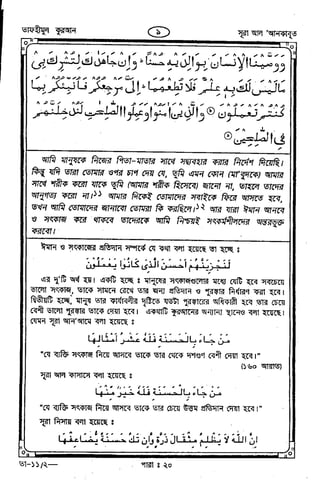 তাফহীমুল কুরআন ৯ সূরা আল 'আনকাবূত
وَوَصَّيْنَا الْإِنْسَانَ بِوَالِدَيْهِ حُسْنًا ۖ وَإِنْ جَاهَدٰكَ لِتُشْرِكَ بِيْ
مَا لَيْسَ لَكَ بِهِ عِلْمٌ فَلَا تُطِعْهُمَا ۚ إِلَيَّ مَرْجِعُكُمْ فَأُنَبِّئُكُمْ بِمَا
كُنْتُمْ تَعْمَلُوْنَ وَالَّذِيْنَ اٰمَنُوْا وَعَمِلُوا الصّٰلِحٰتِ لَنُدْخِلَنَّهُمْ
فِي الصّٰلِحِيْنَ
আমি মানুষকে নিজের পিতা-মাতার সাথে সদ্ব্যবহার করার নির্দেশ দিয়েছি।
কিন্তু যদি তারা তোমার ওপর চাপ দেয় যে, তুমি এমন কোন (মা'বুদকে) আমার
সাথে শরীক করো যাকে তুমি (আমার শরীক হিসেবে) জানো না, তাহলে তাদের
আনুগত্য করো না।১১ আমার দিকেই তোমাদের সবাইকে ফিরে আসতে হবে,
তখন আমি তোমাদের জানাবো তোমরা কি করছিলে।১২ আর যারা ঈমান আনবে
ও সৎকাজ করে থাকবে তাদেরকে আমি নিশ্চয়ই সৎকর্মশীলদের অন্তরভুক্ত
করবো।
ঈমান ও সৎকাজের প্রতিদান সম্পর্কে যে কথা বলা হয়েছে তা হচ্ছে :
لَنَجْزِيَنَّهُمْ أَحْسَنَ الَّذِي كَانُوا يَعْمَلُونَ
এর দু'টি অর্থ হয়। একটি হচ্ছে : মানুষের সৎকাজগুলোর মধ্যে যেটি হবে সবচেয়ে
ভালো সৎকাজ, তাকে সামনে রেখে তার জন্য প্রতিদান ও পুরস্কার নির্ধারণ করা হবে।
দ্বিতীয়টি হচ্ছে, মানুষ তার কার্যাবলীর দৃষ্টিতে যতটা পুরস্কারের অধিকারী হবে তার চেয়ে
বেশী ভালো পুরস্কার তাকে দেয়া হবে। একথাটি কুরআনের অন্যান্য স্থানেও বলা হয়েছে।
যেমন সূরা আন'আমে বলা হয়েছে :
مَنْ جَاءَ بِالْحَسَنَةِ فَلَهُ عَشْرُ أَمْثَالِهَا
"যে ব্যক্তি সৎকাজ নিয়ে আসবে তাকে তার থেকে দশগুণ বেশী দেয়া হবে।"
(১৬০ আয়াত)
সূরা আল কাসাসে বলা হয়েছে :
مَنْ جَاءَ بِالْحَسَنَةِ فَلَهُ خَيْرٌ مِّنْهَا
"যে ব্যক্তি সৎকাজ নিয়ে আসবে তাকে তার চেয়ে উত্তম প্রতিদান দেয়া হবে।"
সূরা নিসায় বলা হয়েছে :
إِنَّ اللَّهَ لَا يَظْلِمُ مِثْقَالَ ذَرَّةٍ وَإِنْ تَكُ حَسَنَةً يُضَاعِفْهَا
তা-১১/২— পারা : ২০